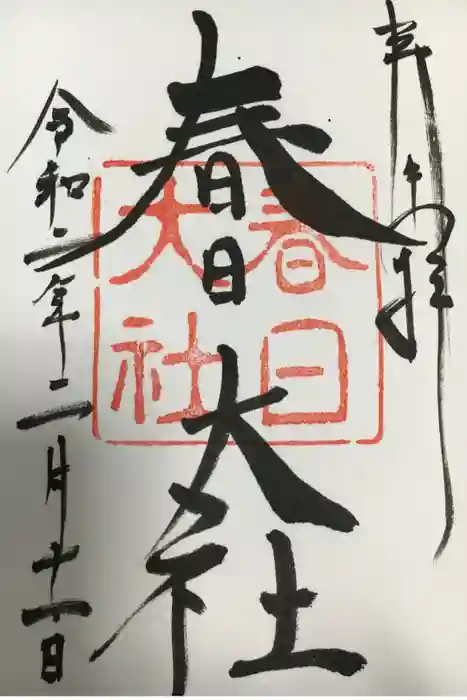 奉拝
春日大社
春日大社
令和二年二月十一日